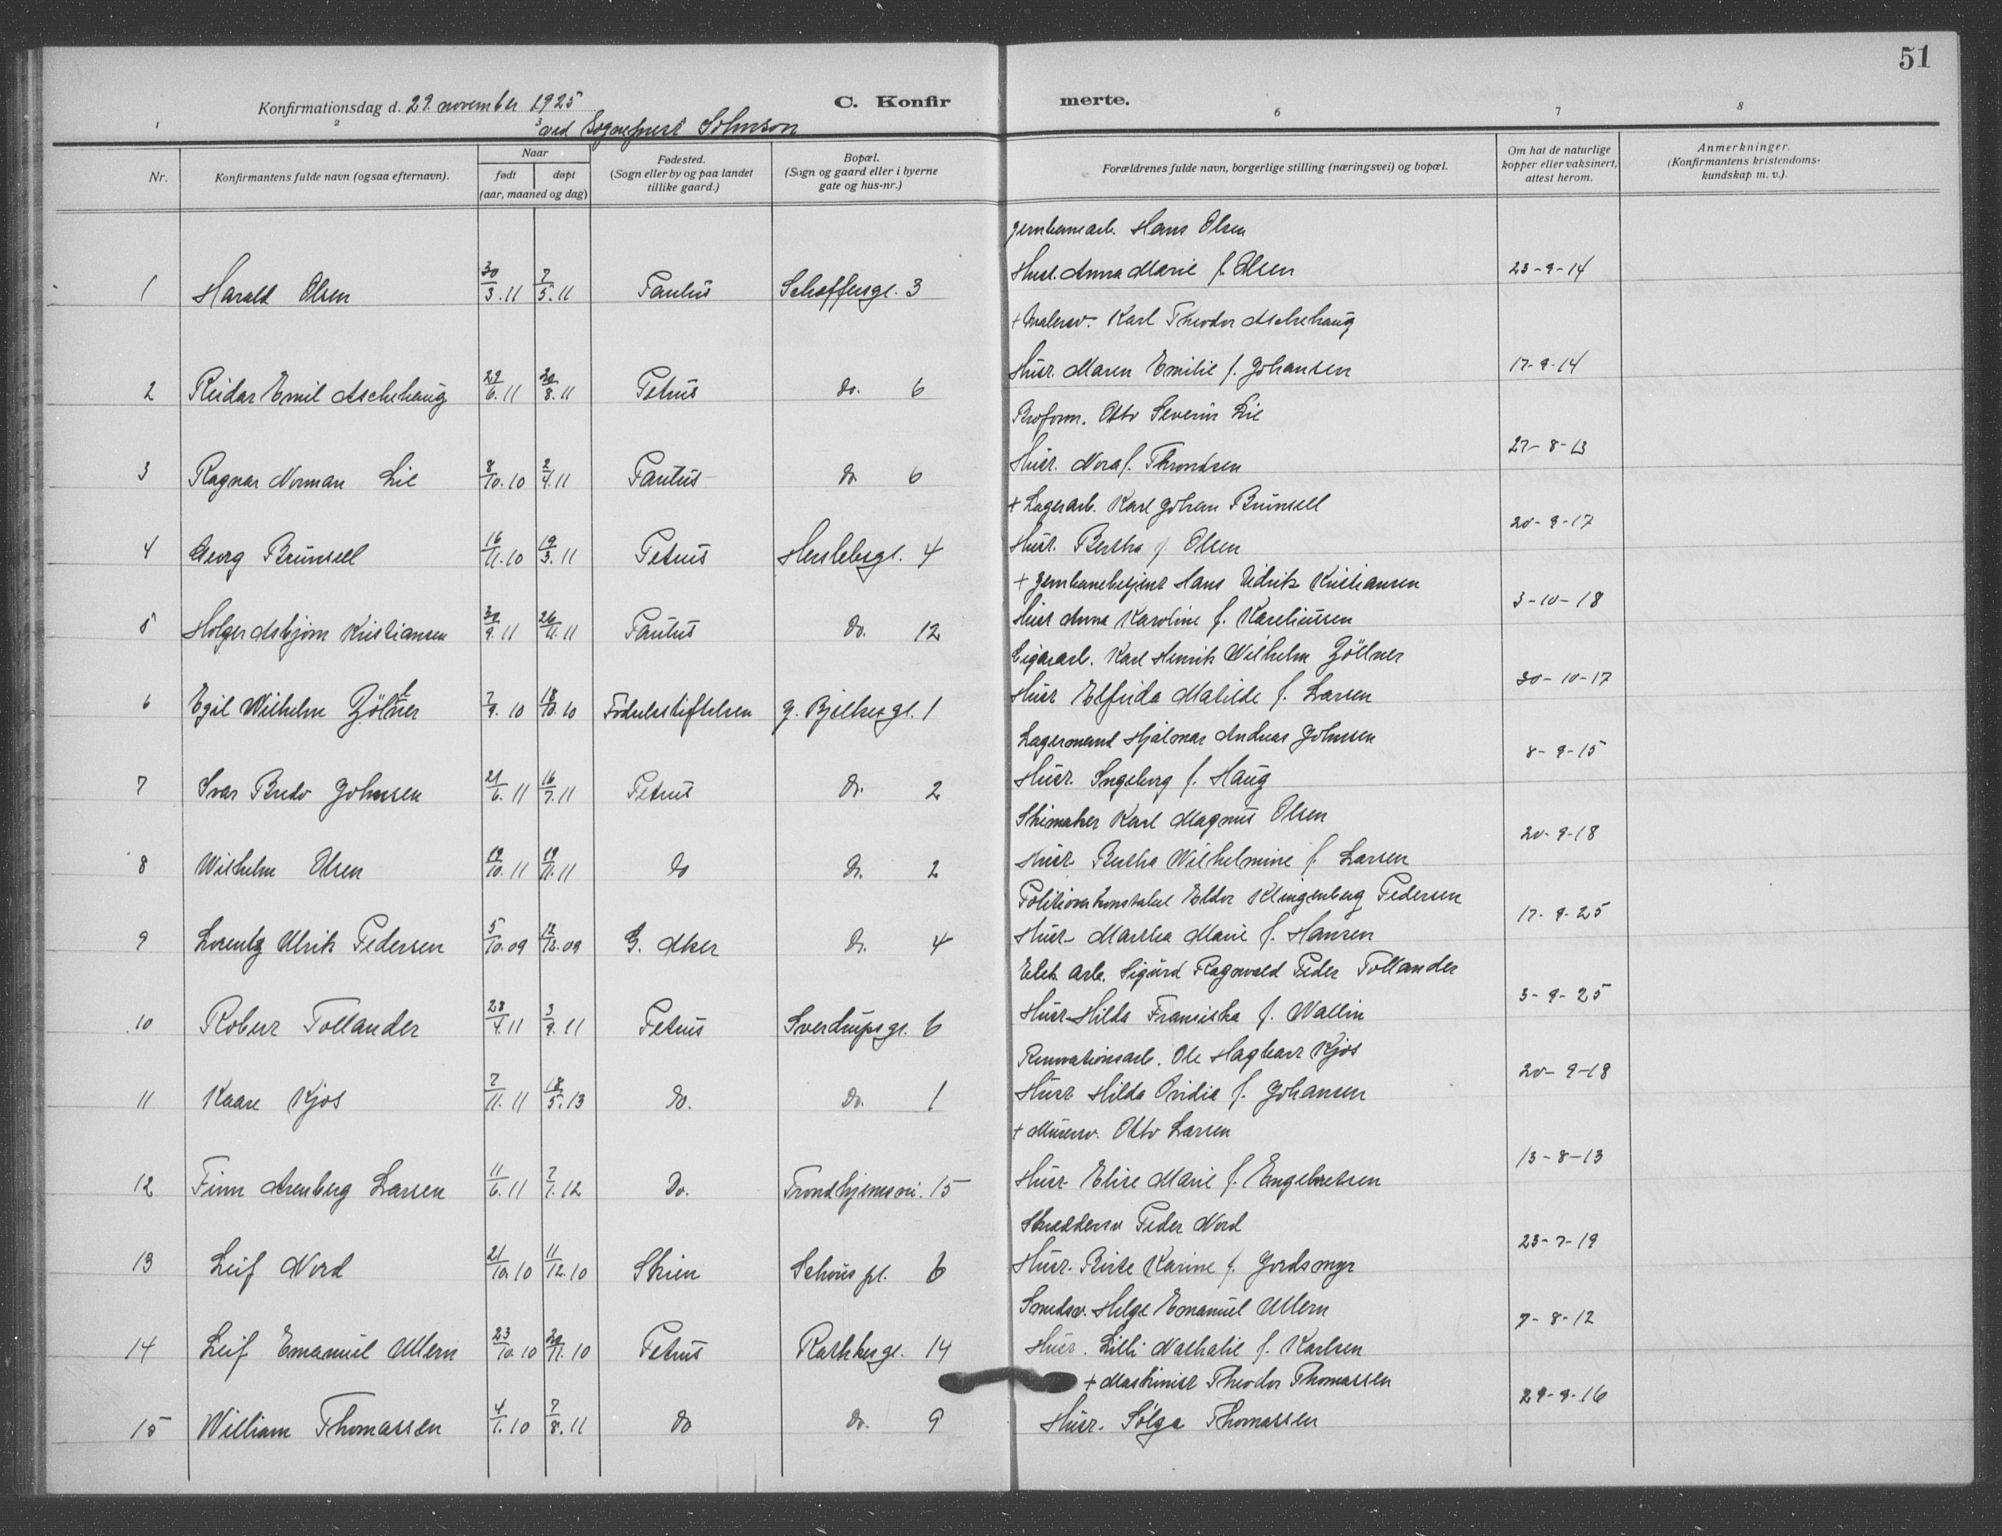 51
Konfirmationsdag d. 29. november 1925 C. Konfirmerte.
ved Sogneprest Johnson
1 2 3 6 7 8
Nr. Konfirmantens fulde navn (ogsaa efternavn). Naar født døpt (aar, maaned og dag) Fødested. (Sogn eller by og paa landet tillike gaard.) Bopæl. (Sogn og gaard eller i byerne gate og hus-nr.) Forældrenes fulde navn, borgerlige stilling (næringsvei) og bopæl. Om hat de naturlige kopper eller vaksinert, attest herom. Anmerkninger. (Konfirmantens kristendomskundskap m. v.).
Jernbanearb. Hans Olsen
1 Harald Olsen 30/3.11 7/5.11 Paulus Scheffersgt. 3 Hust. Anna Marie f. Olsen 23-9-14
+ Malersv. Karl Theodor Aschehaug
2 Reidar Emil Aschehaug 29/6.11 20/8.11 Petrus do. 6 Hustr. Maren Emilie f. Johansen 17-9-14
Otto Severin Lie
3 Ragnar Norman Lie 8/10.10 2/4.11 Paulus do 6 Hustr. Nora f. Throndsen 27-8-13
+ Lagerarb. Karl Johan Brunsell
4 Georg Brunsell 16/11.10 19/3.11 Petrus Herslebsgt. 4 Hustr. Bertha f Olsen 20-9-17
+ Jernbanebetjent Hans Didrik Kristiansen
5 Holger Asbjørn Kristiansen 30/9.11 26/11.11 Paulus do. 12 Hustr Anna Karoline f. Kareliussen 3-10-18
Cigararb. Karl Henrik Wilhelm Zöllner
6 Egil Wilhelm Zöllner 7/9.10 18/10.10 Fødselsstiftelsen g. Bjelkes gt. 1 Hustr Elfrida Matilde f. Larsen 30-10-17
Lagermand Hjalmar Andreas Johnsen
7 Ivar Bredo Johnsen 21/6.11 16/7.11 Petrus do. 2 Hustr. Ingeborg f. Haug 8-9-15
Skomaker Karl Magnus Olsen
8 Wilhelm Olsen 19/10.11 19/11.11 do do. 2 Hustr. Bertha Wilhelmine f Larsen 20-9-18
Politioverkonstabel Eldor Klingenberg Pedersen
9 Lorentz Ulrik Pedersen 5/10.09 12/12.09 G. Aker do. 4 Hustr. Martha Marie f. Hansen 17-9-25
Elek. Arb. Sigurd Ragnvald Peder Tollander
10 Robert Tollander 28/4.11 3/9.11 Petrus Sverdrupsgt. 6 Hustr. Hilda Fransiska f. Wallin 3-9-25
Renovationsarb. Ole Hagbart Kjos
11 Kaare Kjos 7/11.11 18/5.13 do. do. 1 Hustr Hilda Ovidia f. Johansen 20-9-18
+ Murersv. Otto Larsen
12 Finn Arenberg Larsen 11/6.11 7/1.12 do. Trondhjemsvei. 15 Hustr Elise Marie f. Engebretsen 13-8-13
Skreddersv Peder Nord
13 Leif Nord 21/10.10 11/12.10 Skien Schous pl. 6 Hustr. Karine f. 23-7-19
Smedsv. Helge Emanuel Ullern
14 Leif Emanuel Ullern 23/10.10 20/11.10 Petrus Rathkesgt. 14 Hustr. Lilli Nathalie f. Karlsen 7-8-12
+ Maskinist Theodor Thomassen
15 William Thomassen 4/1.10 7/8.11 do do. 9 Hustr. Solga Thomassen 29-9-16